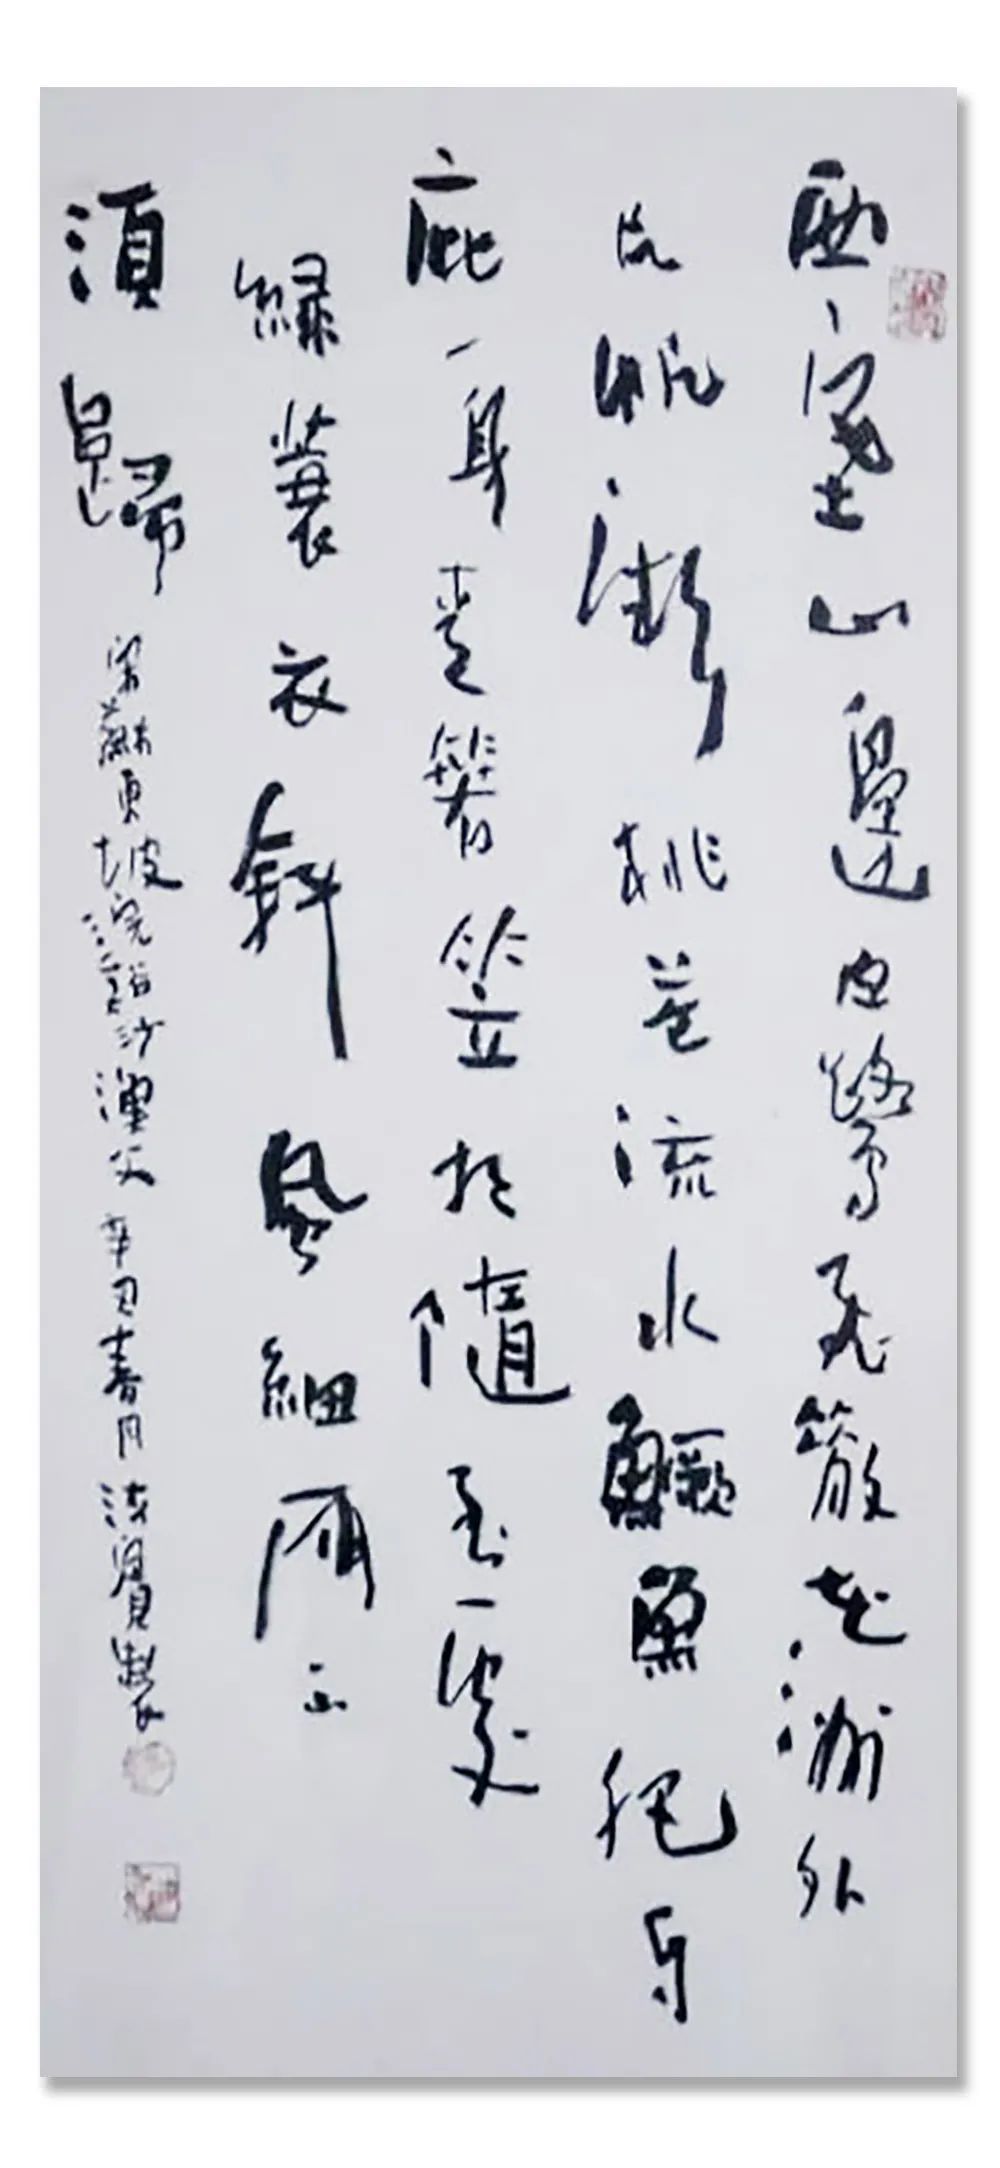 西塞山邊白鷺飛散花洲外
片帆微桃花流水鱖魚肥自
庇一身青箬笠相隨到處
綠蓑衣斜風細雨不
須歸 宋蘇東坡浣溪沙漁父 辛丑春月